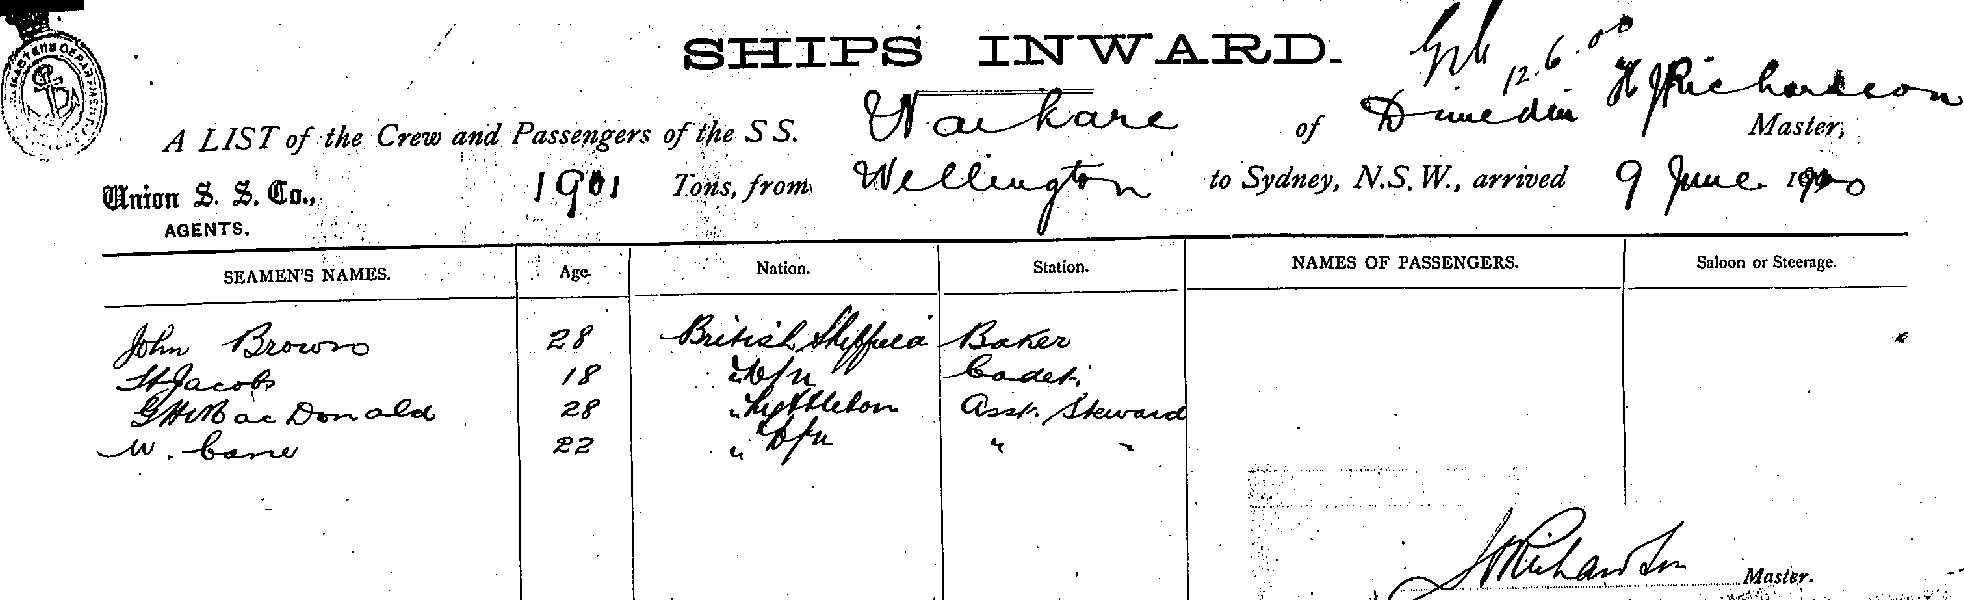 SHIPS INWARD.
12.6.00
A LIST of the Crew and Passengers of the S S. Waikare of Dunedin H J Richardson Master,
Union S. S. Co., 1901 Tons, from Wellington to Sydney, N.S.W., arrived 9 June 1900
AGENTS.
SEAMEN'S NAMES. Age. Nation. Station. NAMES OF PASSENGERS. Saloon or Steerage.
John Brown 28 British Sheffield Baker
H Jacobs 18 " D/n Cadet
G H MacDonald 28 " Lyttleton Asst. Steward
W. Cane 22 " D/n " "
Richardson Master.